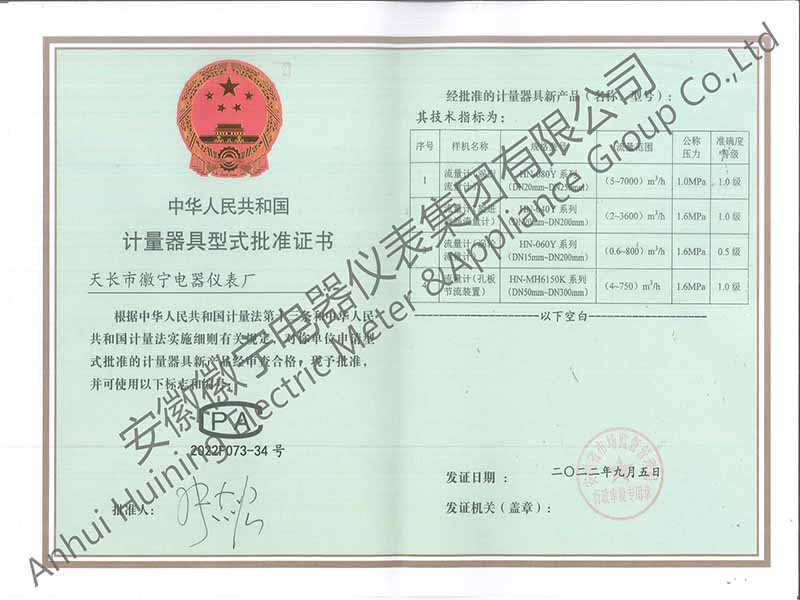 中华人民共和国
计量器具型式批准证书
天长市徽宁电器仪表厂
根据中华人民共和国计量法第十三条和中华人民
共和国计量法实施细则有关规定，对你单位申请型
式批准的计量器具新产品经审查合格，现予批准，
并可使用以下标志和编号：
CPA
2022F073-34 号
批准人：
经批准的计量器具新产品（名称、型号）：
其技术指标为：
序号 样机名称 规格型号 流量范围 公称压力 准确度等级
1 流量计（涡街流量计） HN-080Y 系列 (DN20mm~DN250mm) (5~7000) m³/h 1.0MPa 1.0 级
流量计 HN-040Y 系列 (DN20mm~DN200mm) (2~3600) m³/h 1.6MPa 1.0 级
流量计（涡轮流量计） HN-060Y 系列 (DN15mm~DN200mm) (0.6~800) m³/h 1.6MPa 0.5 级
流量计（孔板节流装置） HN-MH6150K 系列 (DN50mm~DN300mm) (4~750) m³/h 1.6MPa 1.0 级
以下空白
发证日期：
二〇二二年九月五日
发证机关（盖章）：
安徽省市场监督管理局
行政审批专用章
安徽徽宁电器仪表集团有限公司
Anhui Huining Electric Meter &Appliance Group Co.,Ltd